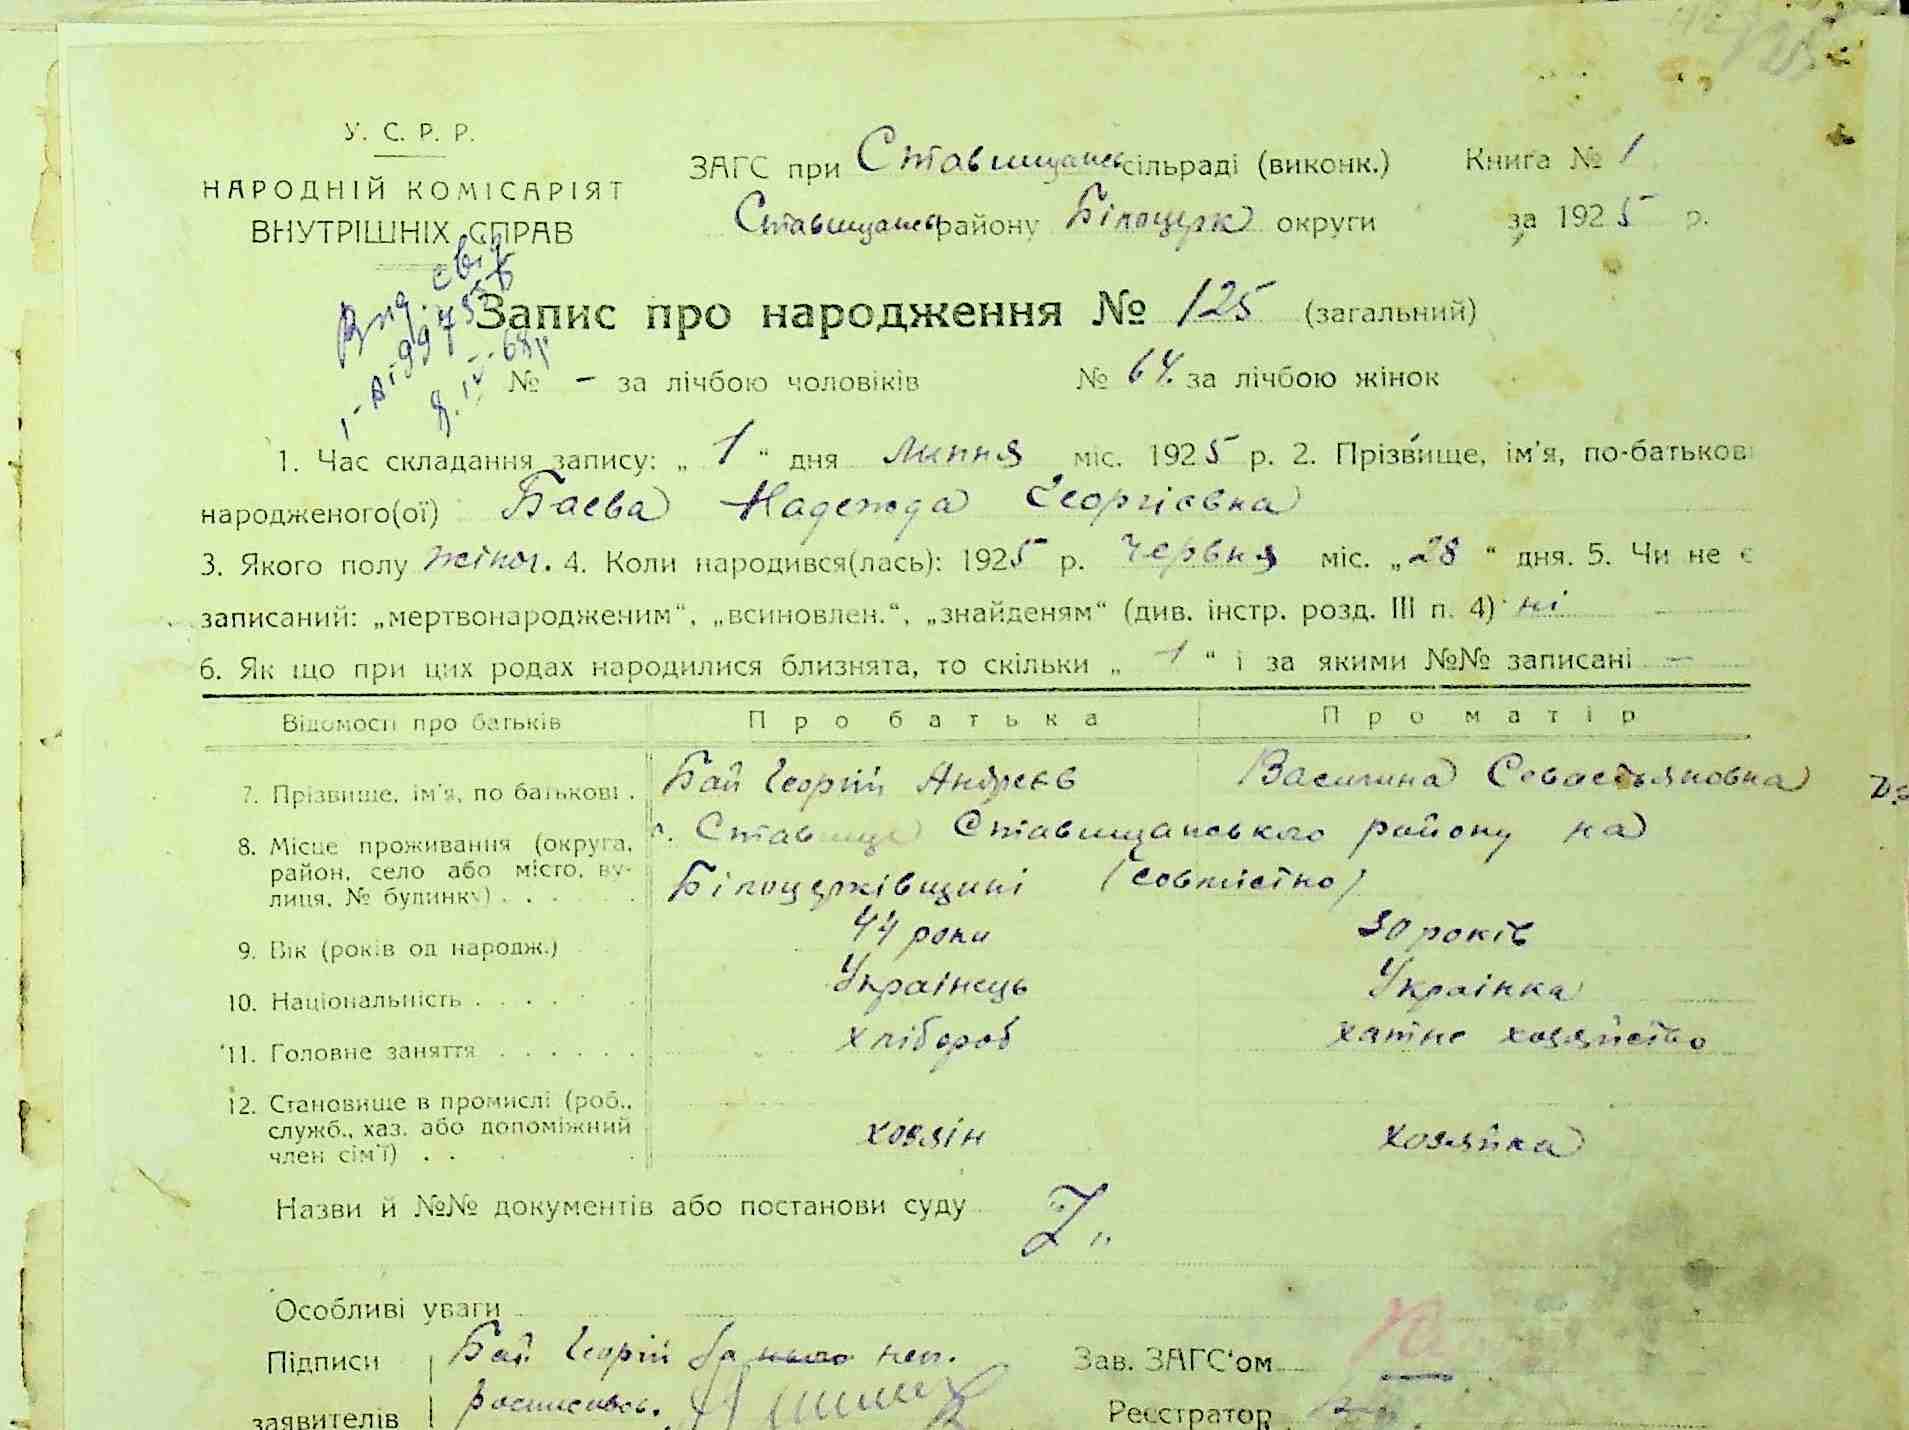 У. С. Р. Р.
НАРОДНІЙ КОМІСАРІЯТ
ВНУТРІШНІХ СПРАВ
ЗАГС при Ставищанськ сільраді (виконк.) Книга № 1
Ставищанськ району Білоцерк округи за 1925 р.
Запис про народження № 125 (загальний)
№ – за лічбою чоловіків № 64 за лічбою жінок
1. Час складання запису: „ 1 “ дня липня міс. 1925 р. 2. Прізвище, ім'я, по-батькові
народженого(ої) Баєва Надежда Георгієвна
3. Якого полу жіноч. 4. Коли народився(лась): 1925 р. Червня міс. „28“ дня. 5. Чи не є
записаний: „мертвонародженим“, „всиновлен.“, „знайденям“ (див. інстр. розд. III п. 4) ні
6. Як що при цих родах народилися близнята, то скільки „ 1 “ і за якими №№ записані —
Відомості про батьків Про батька Про матір
7. Прізвище, ім'я, по батькові . Бай Георгій Андреєв Василина Севастьяновна
8. Місце проживання (округа, район, село або місто, вулиця, № будинку) с. Ставище Ставищанського району на
Білоцерківщині (совмістно)
9. Вік (років од народж.) 44 роки 30 років
10. Національність Українець Українка
11. Головне заняття хлібороб хатнє хозяйство
12. Становище в промислі (роб., служб., хаз. або допоміжний член сім'ї) хозяін хозяйка
Назви й №№ документів або постанови суду
Особливі уваги
Підписи Бай Георгій Зав. ЗАГС'ом
заявителів росписавсь. Реєстратор